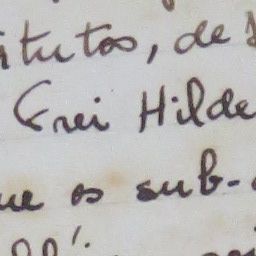 itutos, de
Frei Hilde
ue os sub-